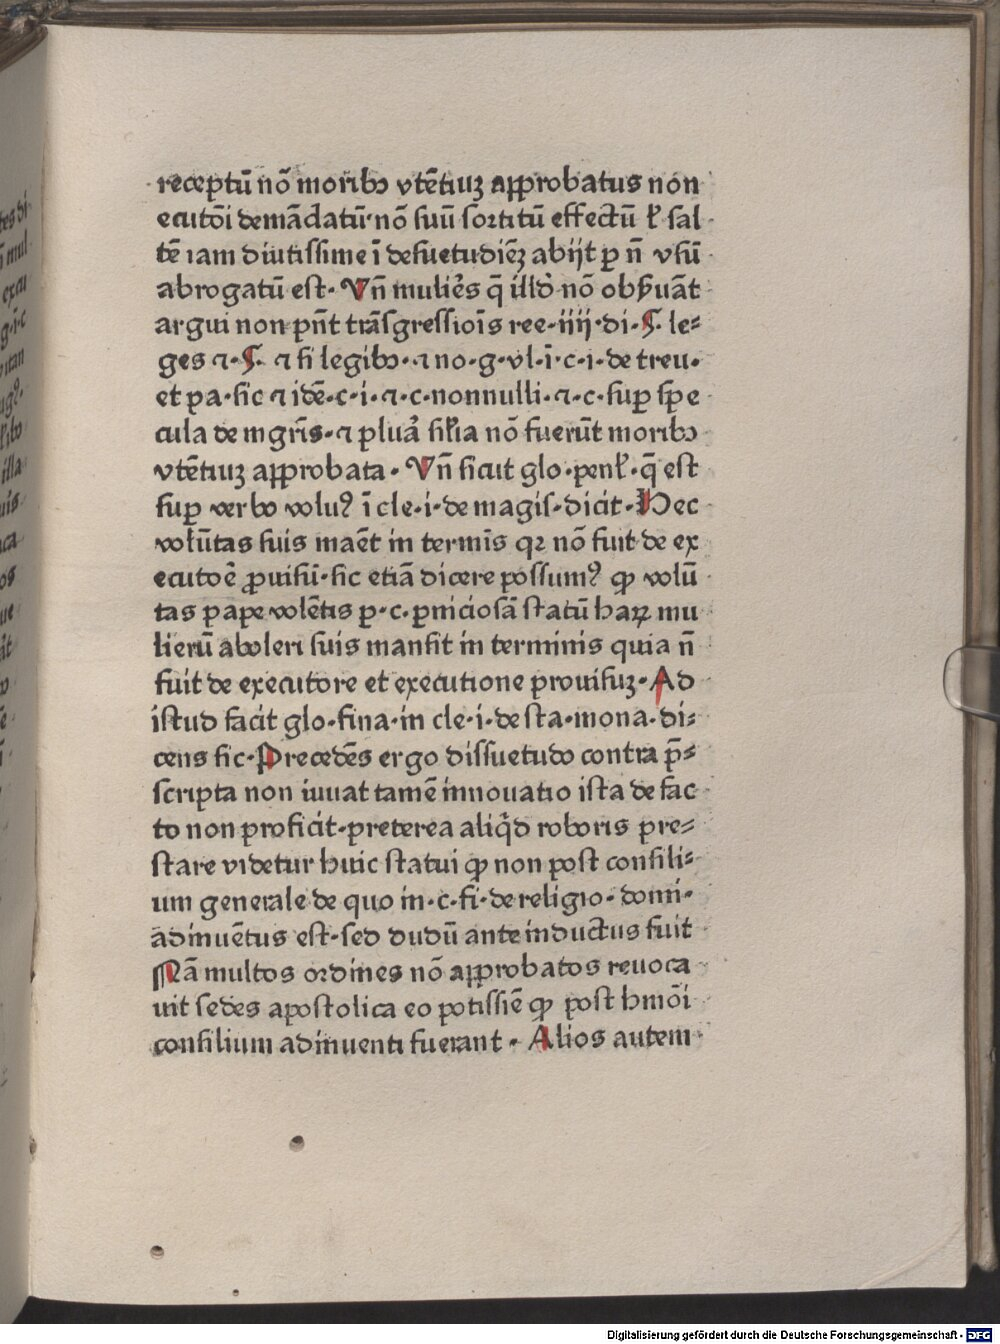 receptū nō moribꝫ vtētiuꝫ approbatus non
ecutōi demādatū· nō suū sortitū effectū ł sal
tē iam diutissime ī desuetudiēꝫ abijt ꝑ n̄ vsū
abrogatū est· Vn̄ mulieꝛ̄s q̄ illđ nō obẜuāt
argui non pn̄t trāsgressiōis ree·iiij·di·§· le⸗
ges ⁊·§· ⁊ si legibꝫ·⁊ no·g·vl·ī·c·i·de treu·
et pa·sic ⁊ idē·c·i·⁊·c·nonnulli·⁊·c·suꝑ spe
cula de mgr̄is·⁊ pluā silīa nō fuerūt moribꝫ
vtētiuꝫ approbata· Vn̄ sicut glo·penł·q̄ est
suꝑ verbo voluꝰ ī cle·i·de magis·dicit·Hec
volūtas suis maēt in termīs qꝛ nō fuit de ex
ecutoē ꝓuisū·sic etiā dicere possumꝰ ꝙ volū
tas pape volētis ꝑ·c·ꝑniciosā statū haꝝ mu
lierū aboleri suis mansit in terminis quia n̄
fuit de executore et executione prouisuꝫ·Ad
istud facit glo·fina·in cle·i·de sta·mona·di⸗
cens sic·Precedēs ergo dissuetudo contra p̄⸗
scripta non iuuat tamē innouatio ista de fac
to non proficit·preterea aliq̇d roboris pre⸗
stare videtur huic statui ꝙ non post consili⸗
um generale de quo in·c·fi·de religio·domi·
adinuētus est·sed dudū ante inductus fuit
Nā multos ordines nō approbatos reuoca
uit sedes apostolica eo potissiē ꝙ post hmōi
consilium adinuenti fuerant· Alios autem
Digitalisierung gefördert durch die Deutsche Forschungsgemeinschaft - DFG